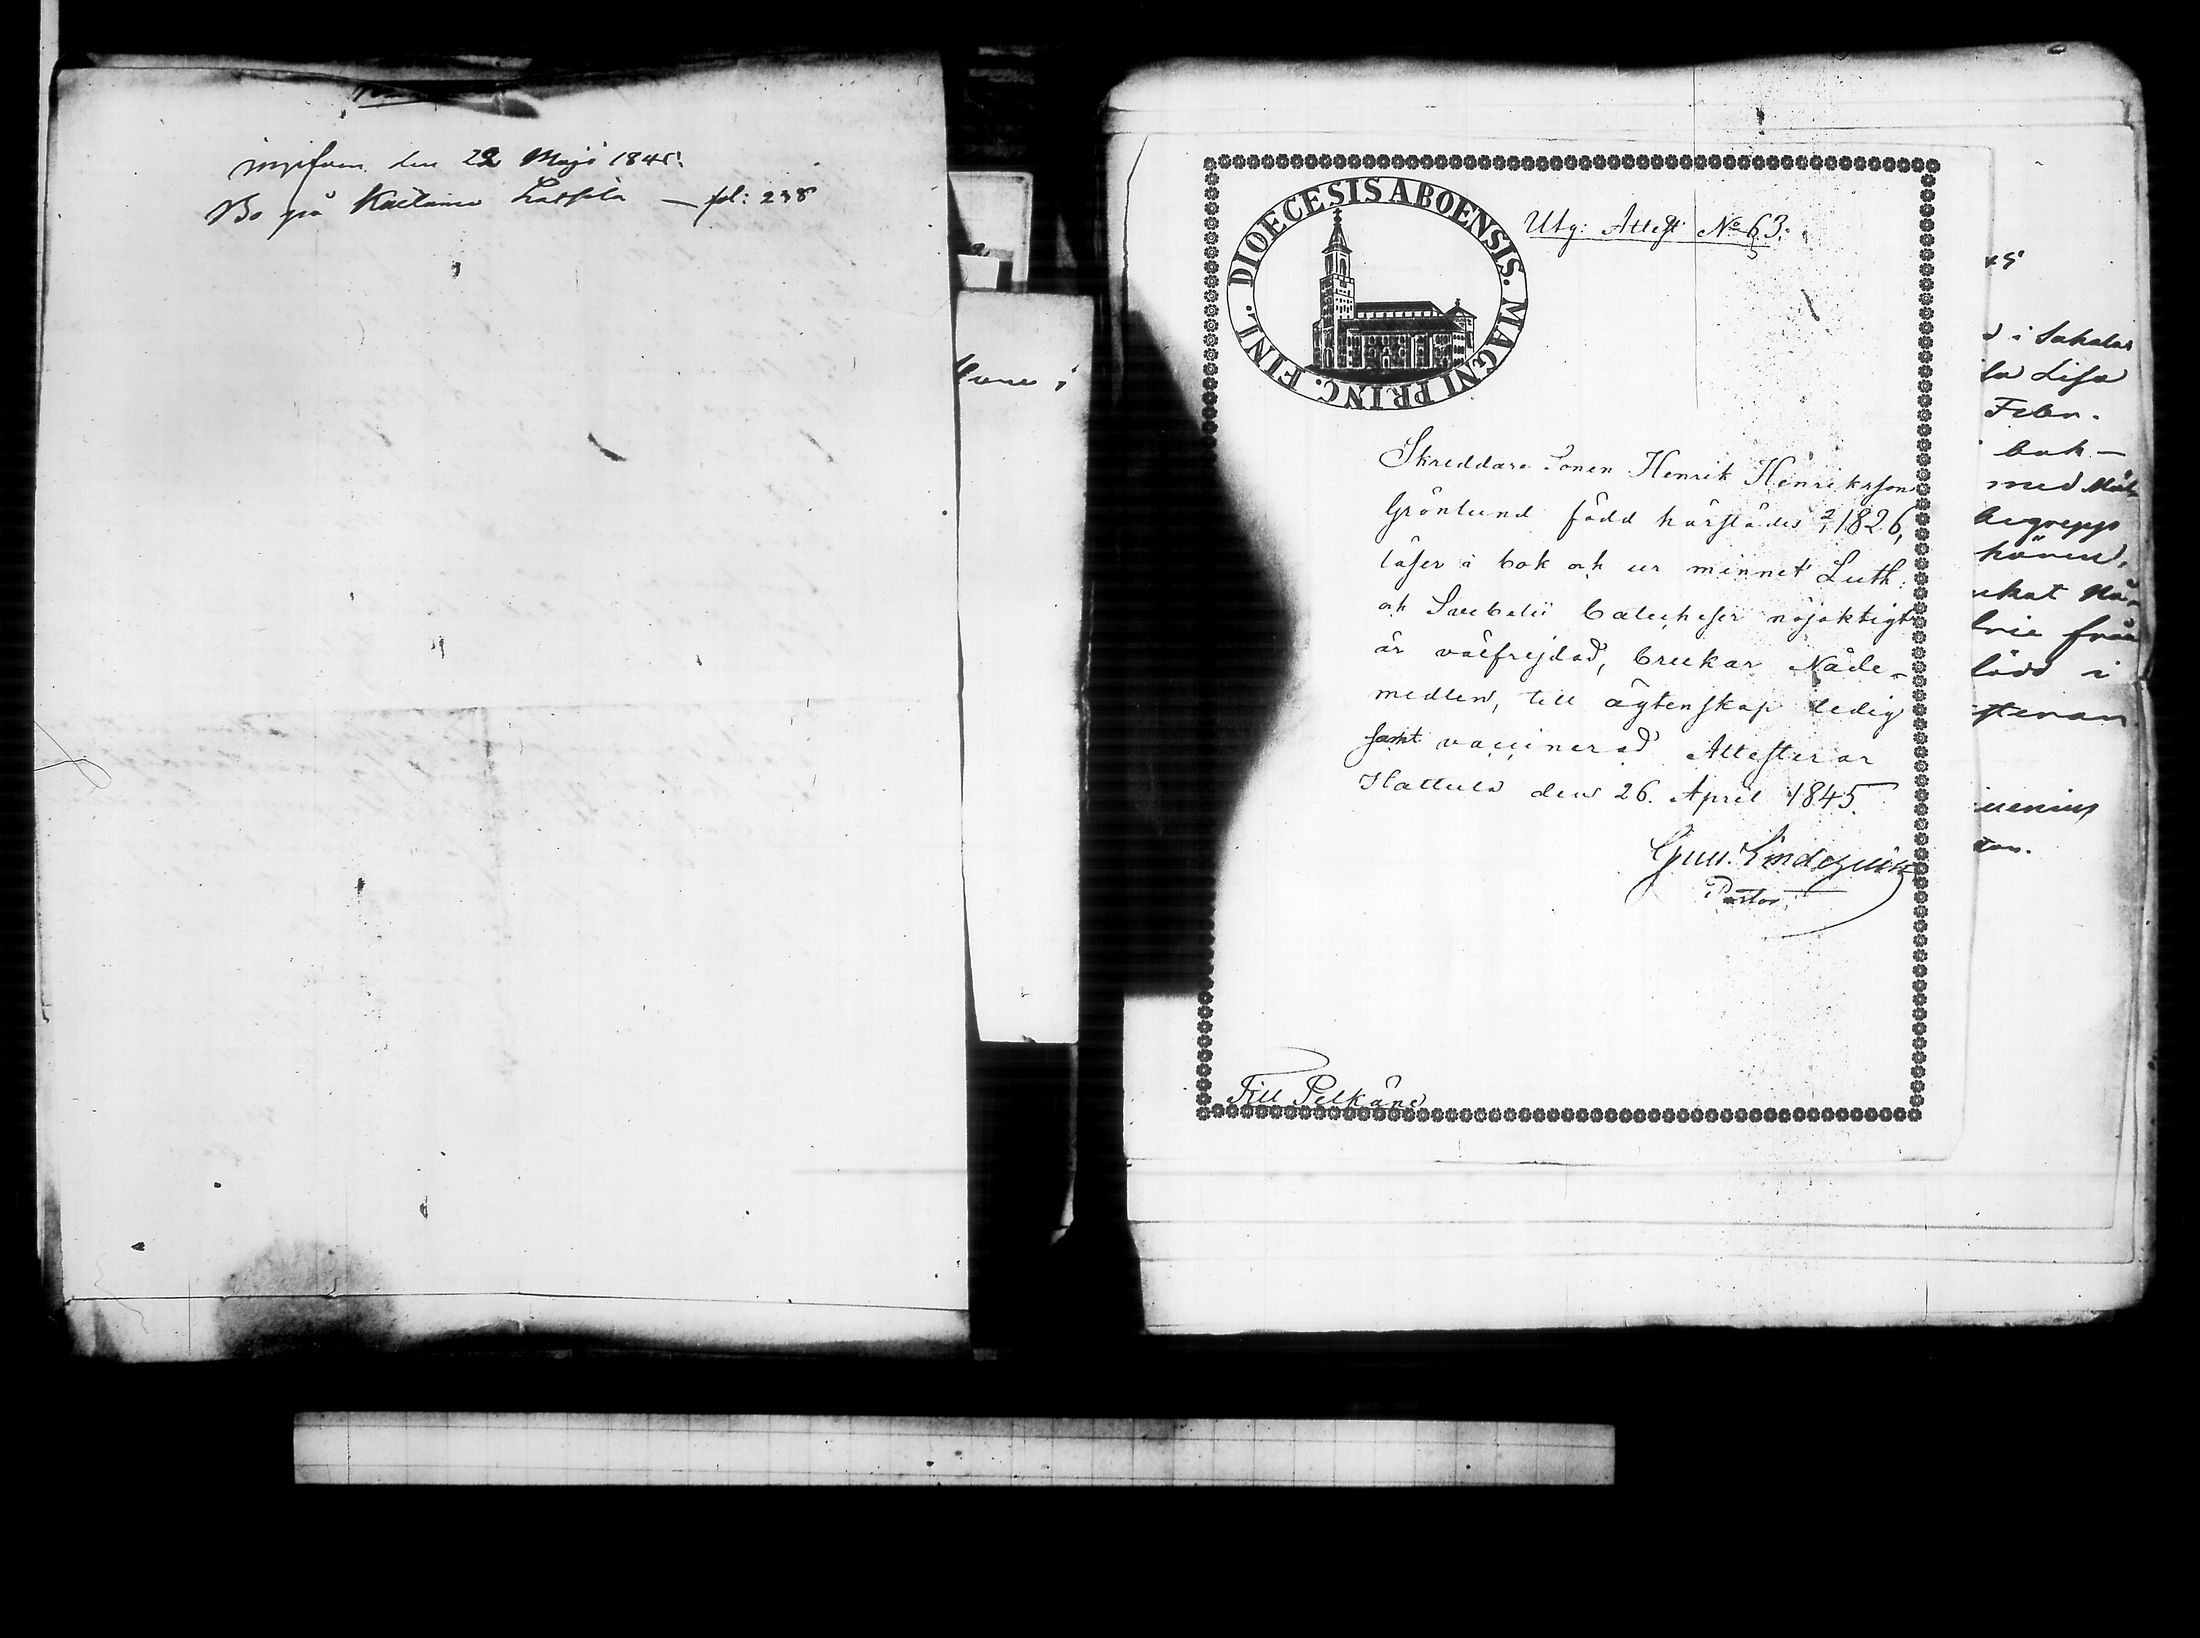 ingifven den 22 Maji 1845.
Bo på Kaitamo Lassila — fol: 238
DIOECESIS ABOENSIS. MAGNI PRINC. FINL.
Utg: Attest No 63.
Skreddare Sonen Henrik Henriksson
Grönlund född härstädes 1826,
läser i bok och ur minnet Luth.
och Svebelii Catecheser nöjaktigt
är välfrejdad, brukar Nåde-
medlen, till ägtenskap ledig
samt vaccinerad Attesterar
Hattula den 26. April 1845.
Gust. Lindeqvist
Pastor.
Till Pelkäne
45
i Sahalax
Lisa
Febr.
bok —
med
begrepp
från
född i